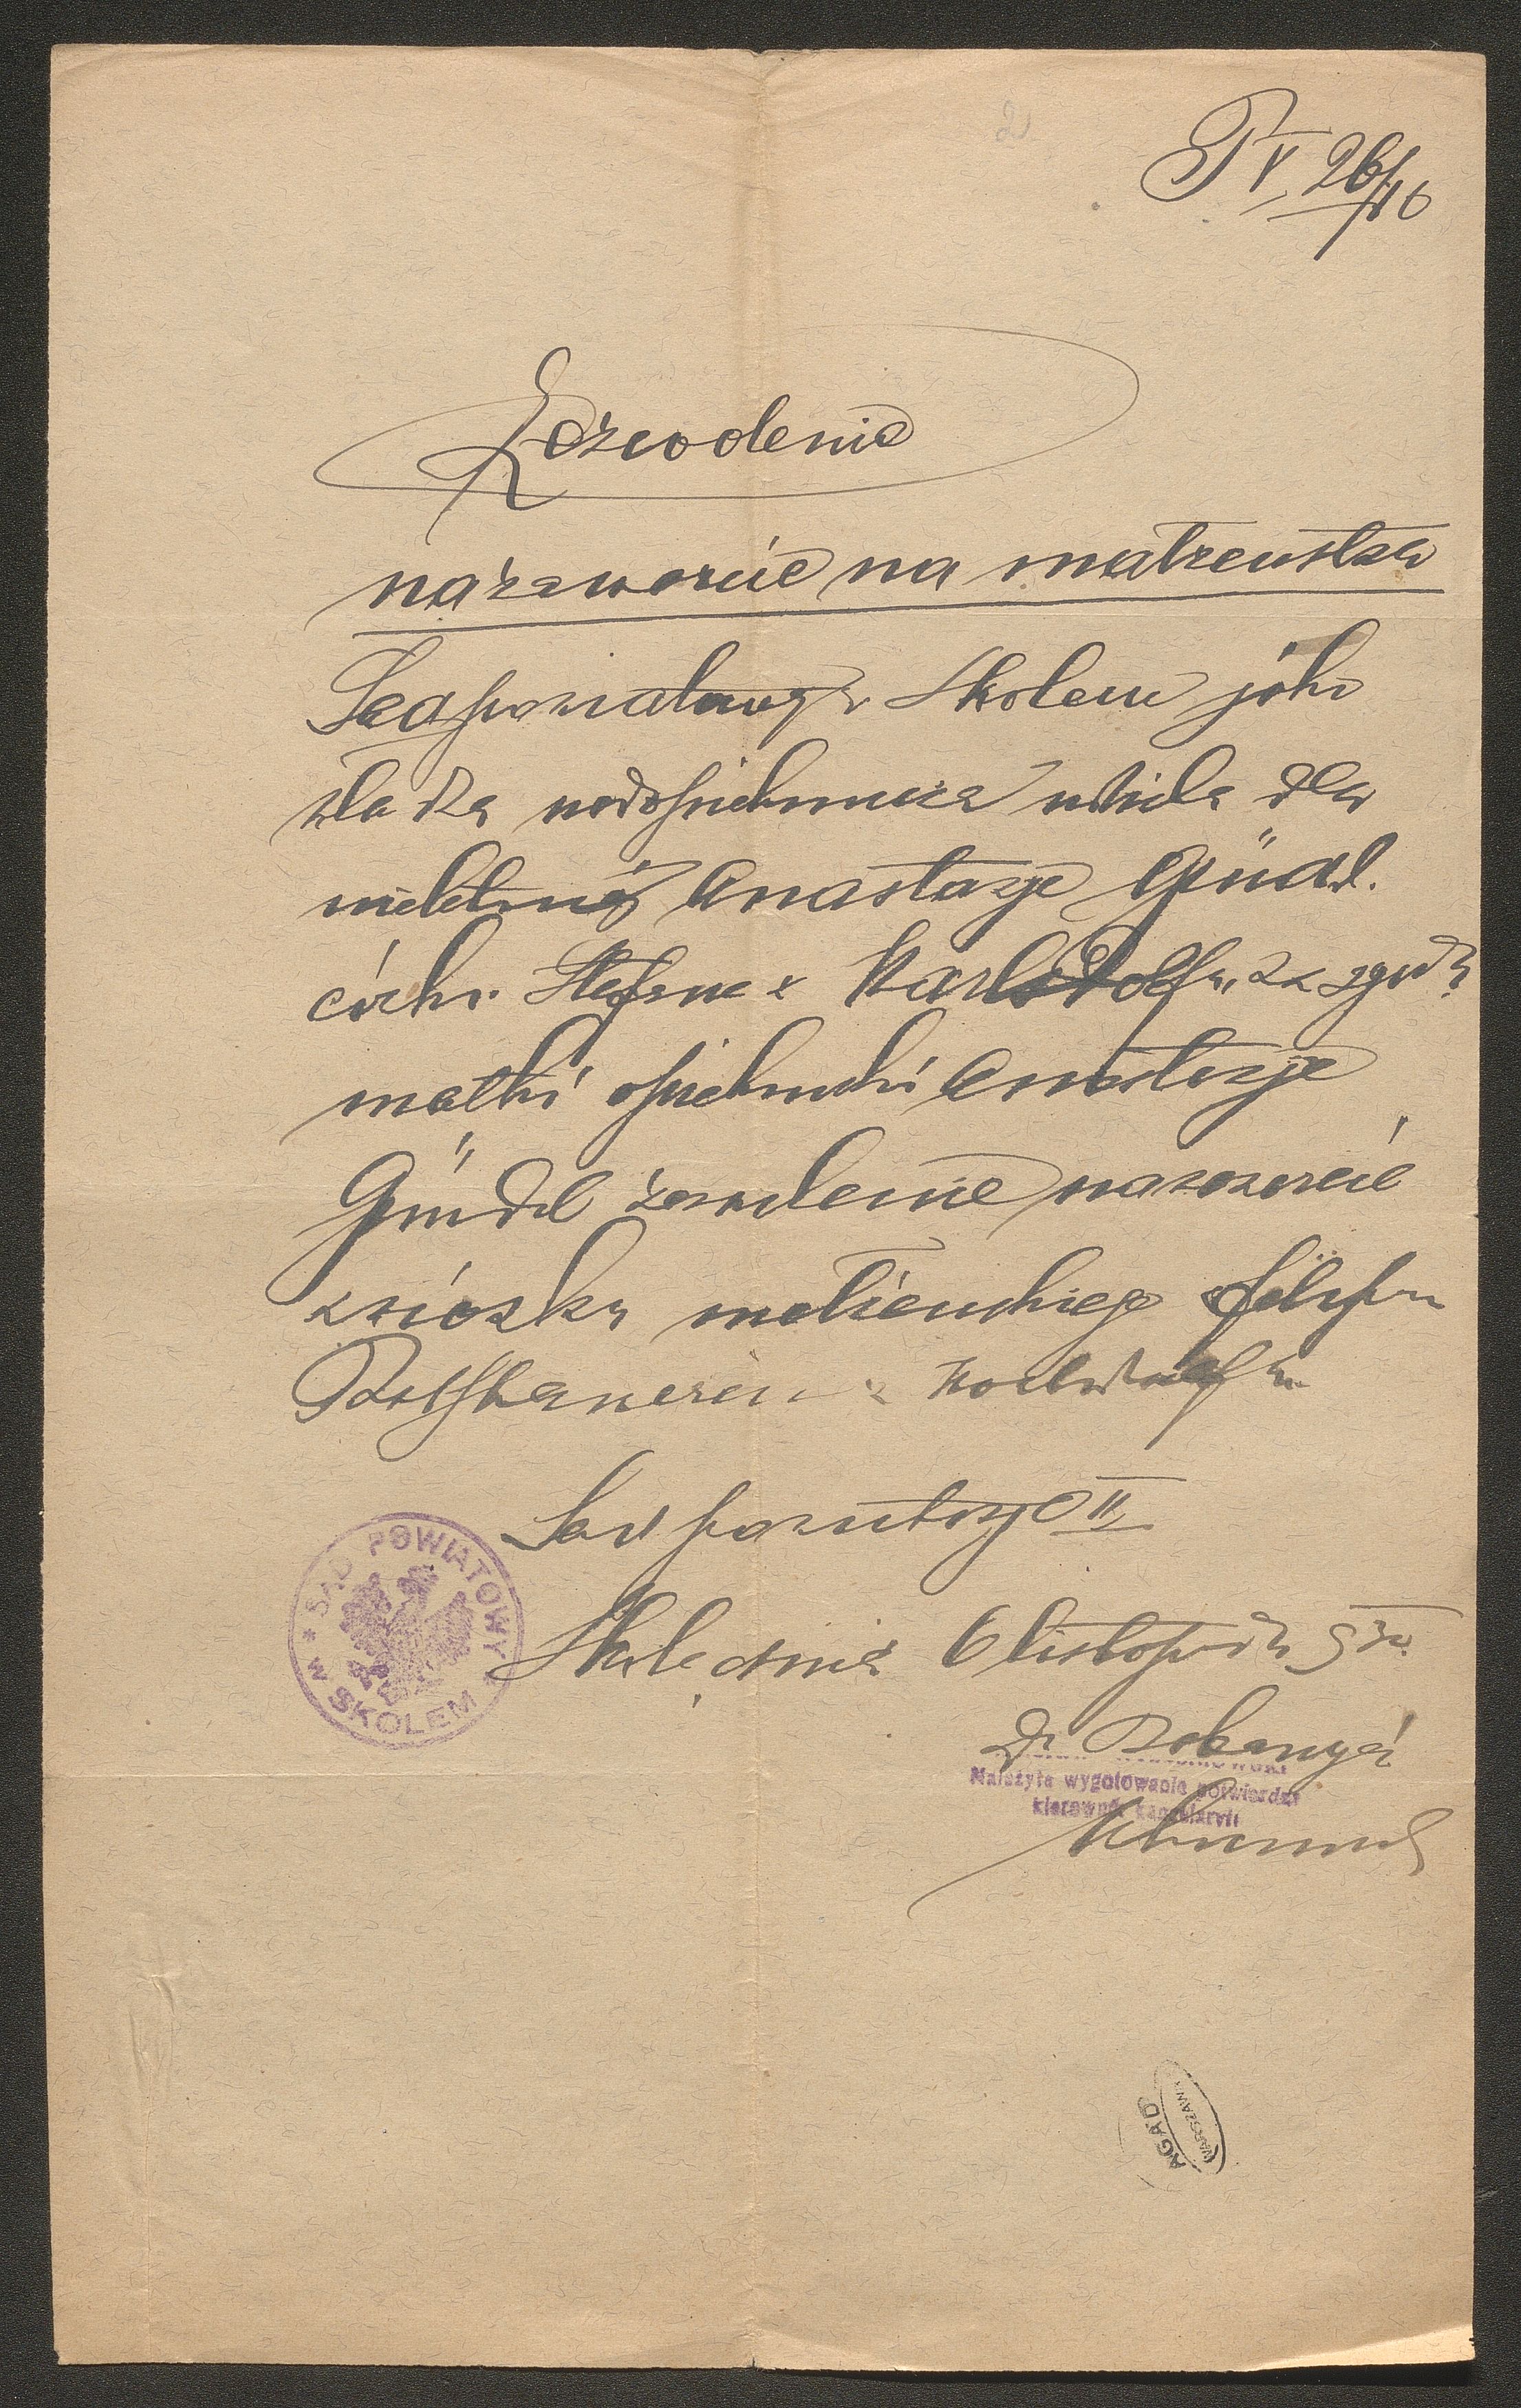 2
P V 26/16
Zezwolenie
na zawarcie na małżeństwa
Sąd powiatowy w Skolem jako
władza nadopiekuńcza udziela dla
małoletniej Anastazyi Gündl.
córki Stefana z Karlsdorfu, za zgodą
matki opiekunki Anastazyi
Gündl zezwolenie na zawarcie
związku małżeńskiego
z Karlsdorfu
Sąd powiatowy O II,
Skole dnia 6 listopada 920.
SĄD POWIATOWY
w SKOLEM
Dr
Należyte wygotowanie potwierdza
kierownik kancelaryi
AGAD
WARSZAWA